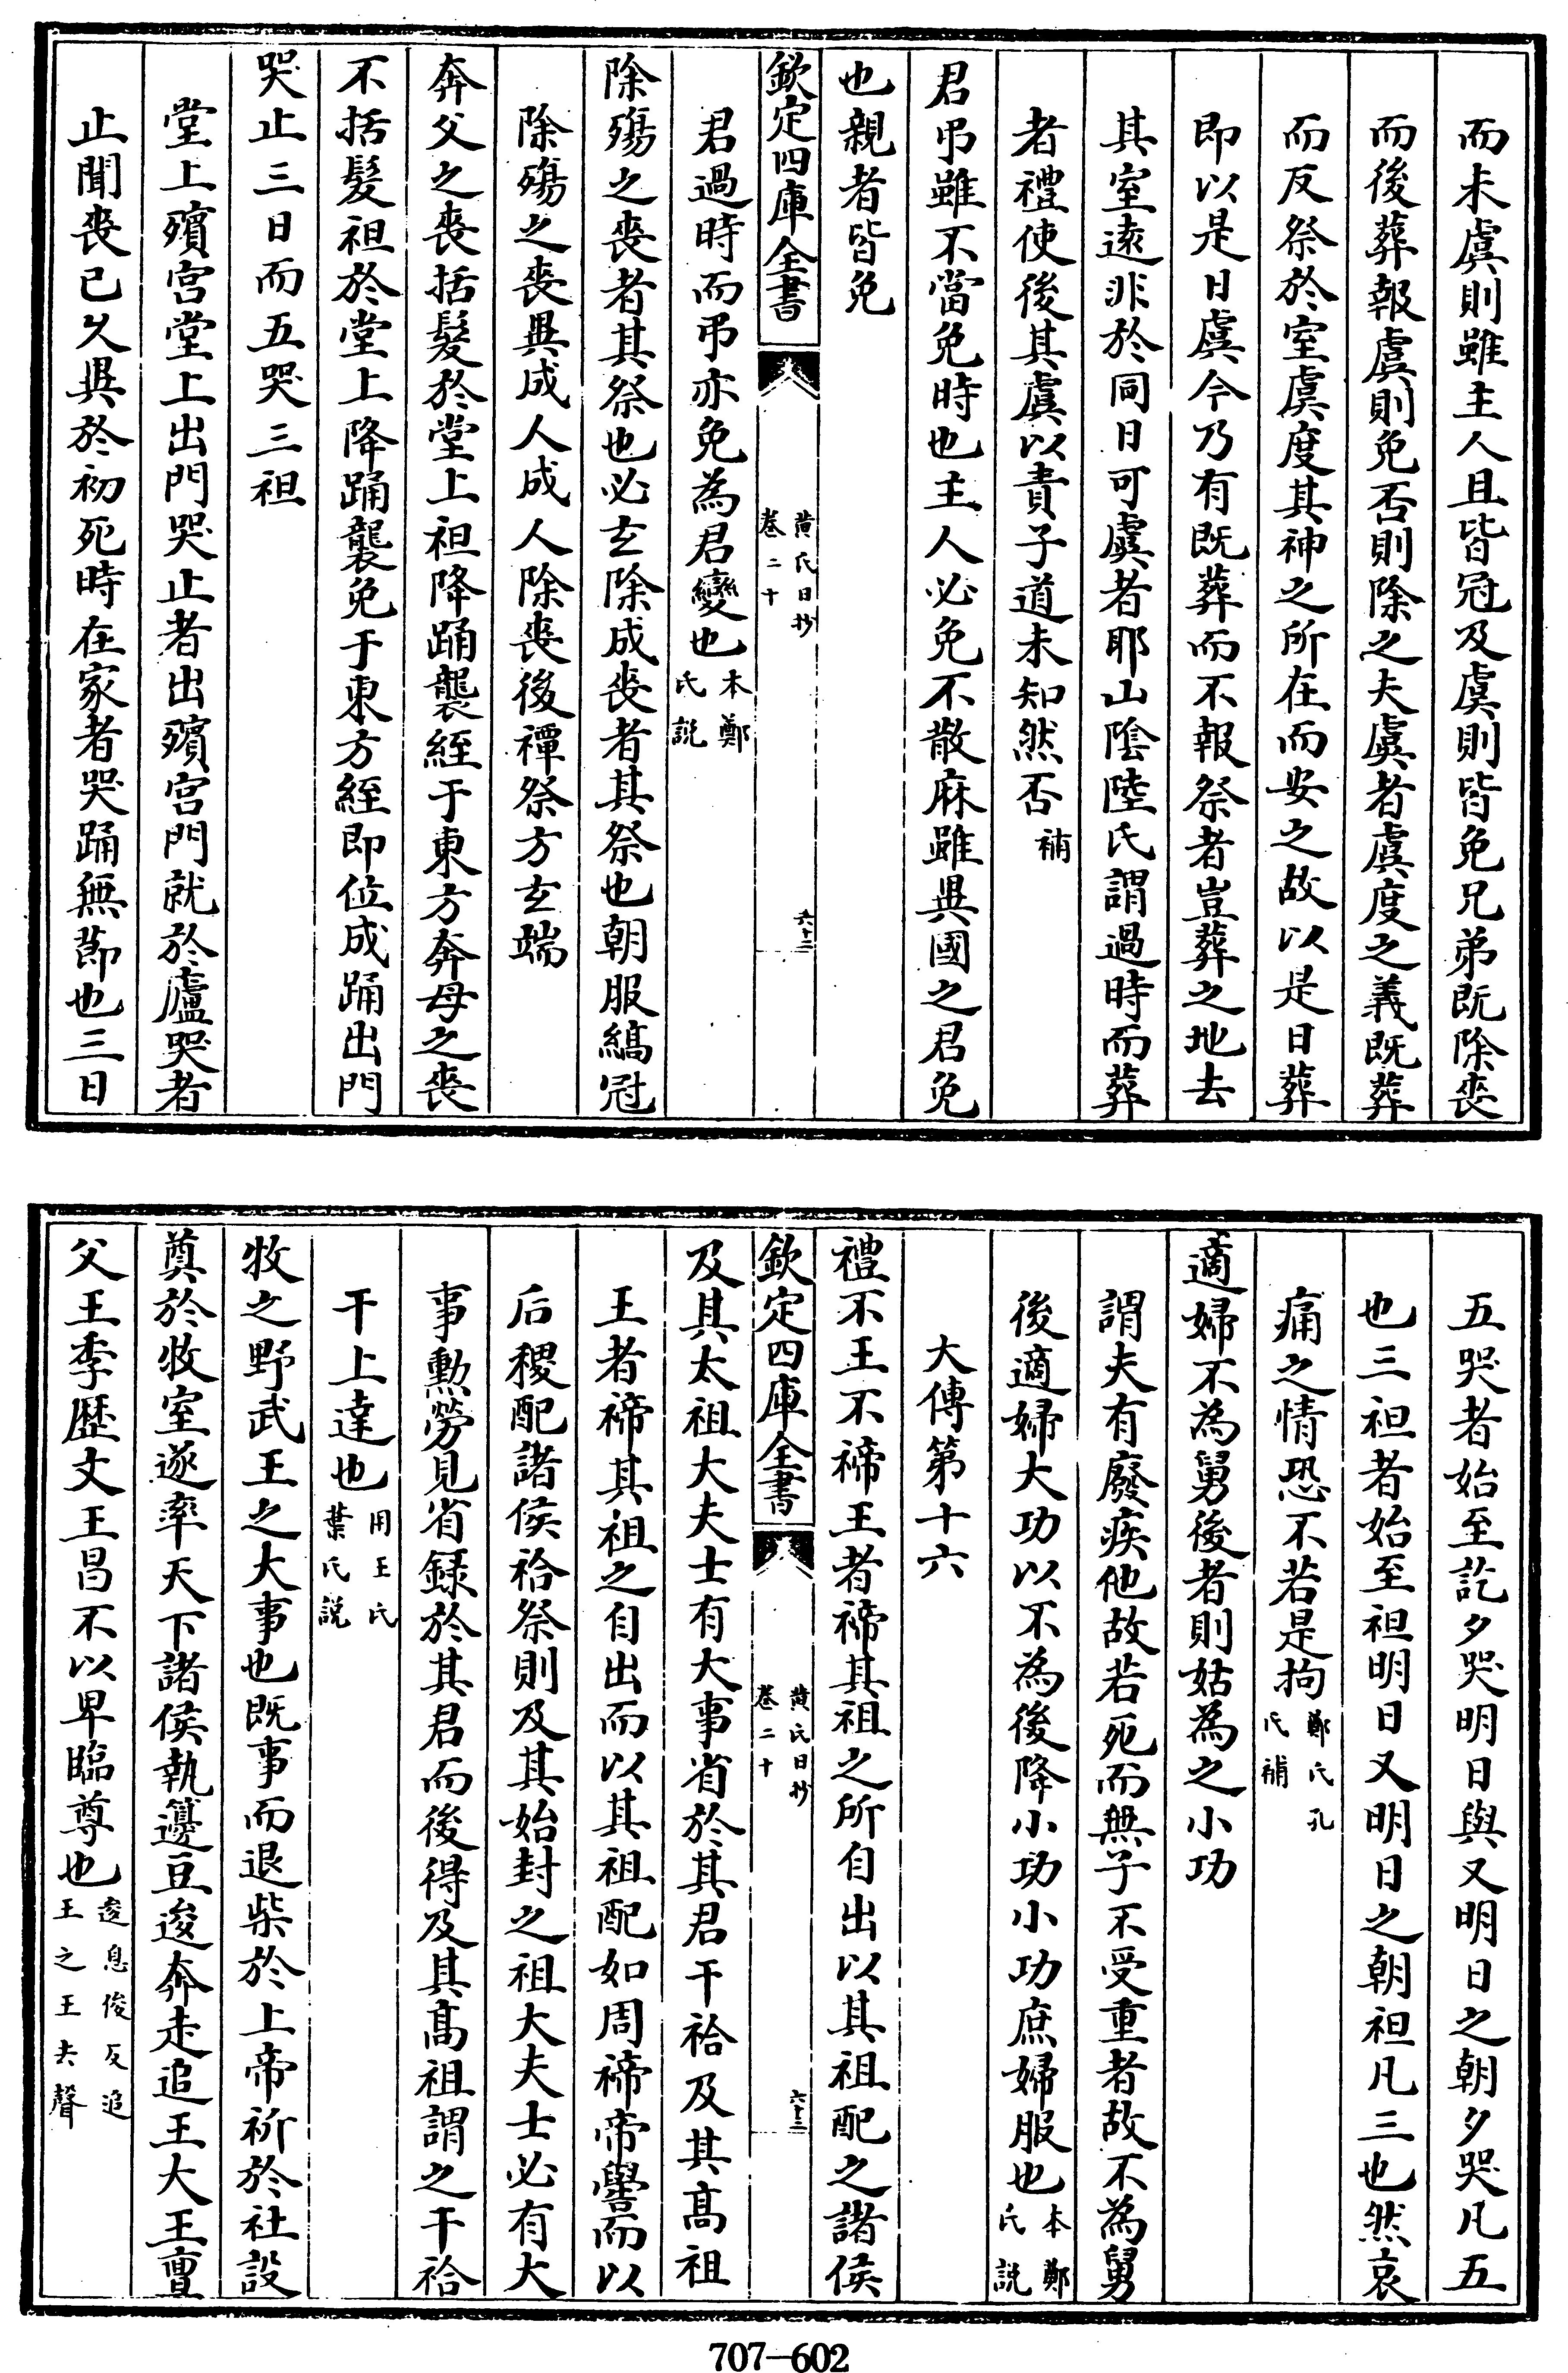 而未虞則雖主人且皆冠及虞則皆免兄弟既除喪
而後葬報虞則免否則除之夫虞者虞度之義既葬
而反祭於室虞度其神之所在而安之故以是日葬
即以是日虞今乃有既葬而不報祭者豈葬之地去
其室逺非於同日可虞者耶山隂陸氏謂過時而葬
者禮使後其虞以責子道未知然否補
君弔雖不當免時也主人必免不散麻雖異國之君免
也親者皆免
欽定四庫全書
黄氏日抄
卷二十
六十二
君過時而弔亦免為君變也本鄭
氏説
除殤之喪者其祭也必玄除成喪者其祭也朝服縞冠
除殤之喪異成人成人除喪後禫祭方玄端
奔父之喪括髮於堂上袒降踊襲絰于東方奔母之喪
不括髮袒於堂上降踊襲免于東方絰即位成踊出門
哭止三日而五哭三袒
堂上殯宮堂上出門哭止者出殯宮門就於廬哭者
止聞喪已久異於初死時在家者哭踊無節也三日
五哭者始至訖夕哭明日與又明日之朝夕哭凡五
也三袒者始至袒明日又明日之朝袒凡三也然哀
痛之情恐不若是拘鄭氏孔
氏補
適婦不為舅後者則姑為之小功
謂夫有廢疾他故若死而無子不受重者故不為舅
後適婦大功以不為後降小功小功庶婦服也本鄭
氏説
大傳第十六
禮不王不禘王者禘其祖之所自出以其祖配之諸侯
欽定四庫全書
黄氏日抄
卷二十
六十三
及其太祖大夫士有大事省於其君干祫及其髙祖
王者禘其祖之自出而以其祖配如周禘帝嚳而以
后稷配諸侯祫祭則及其始封之祖大夫士必有大
事勲勞見省録於其君而後得及其髙祖謂之干祫
干上達也用王氏
葉氏説
牧之野武王之大事也既事而退柴於上帝祈於社設
奠於牧室遂率天下諸侯執籩豆逡奔走追王大王亶
父王季歴文王昌不以卑臨尊也逡息俊反追
王之王去聲
707—602